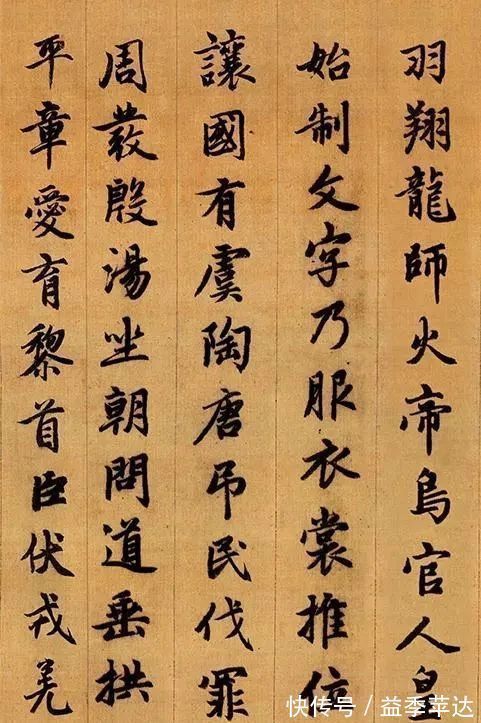 羽翔龍師火帝鳥官人皇
始制文字乃服衣裳推位
讓國有虞陶唐吊民伐罪
周發殷湯坐朝問道垂拱
平章愛育黎首臣伏戎羌
快传号/益季苹达